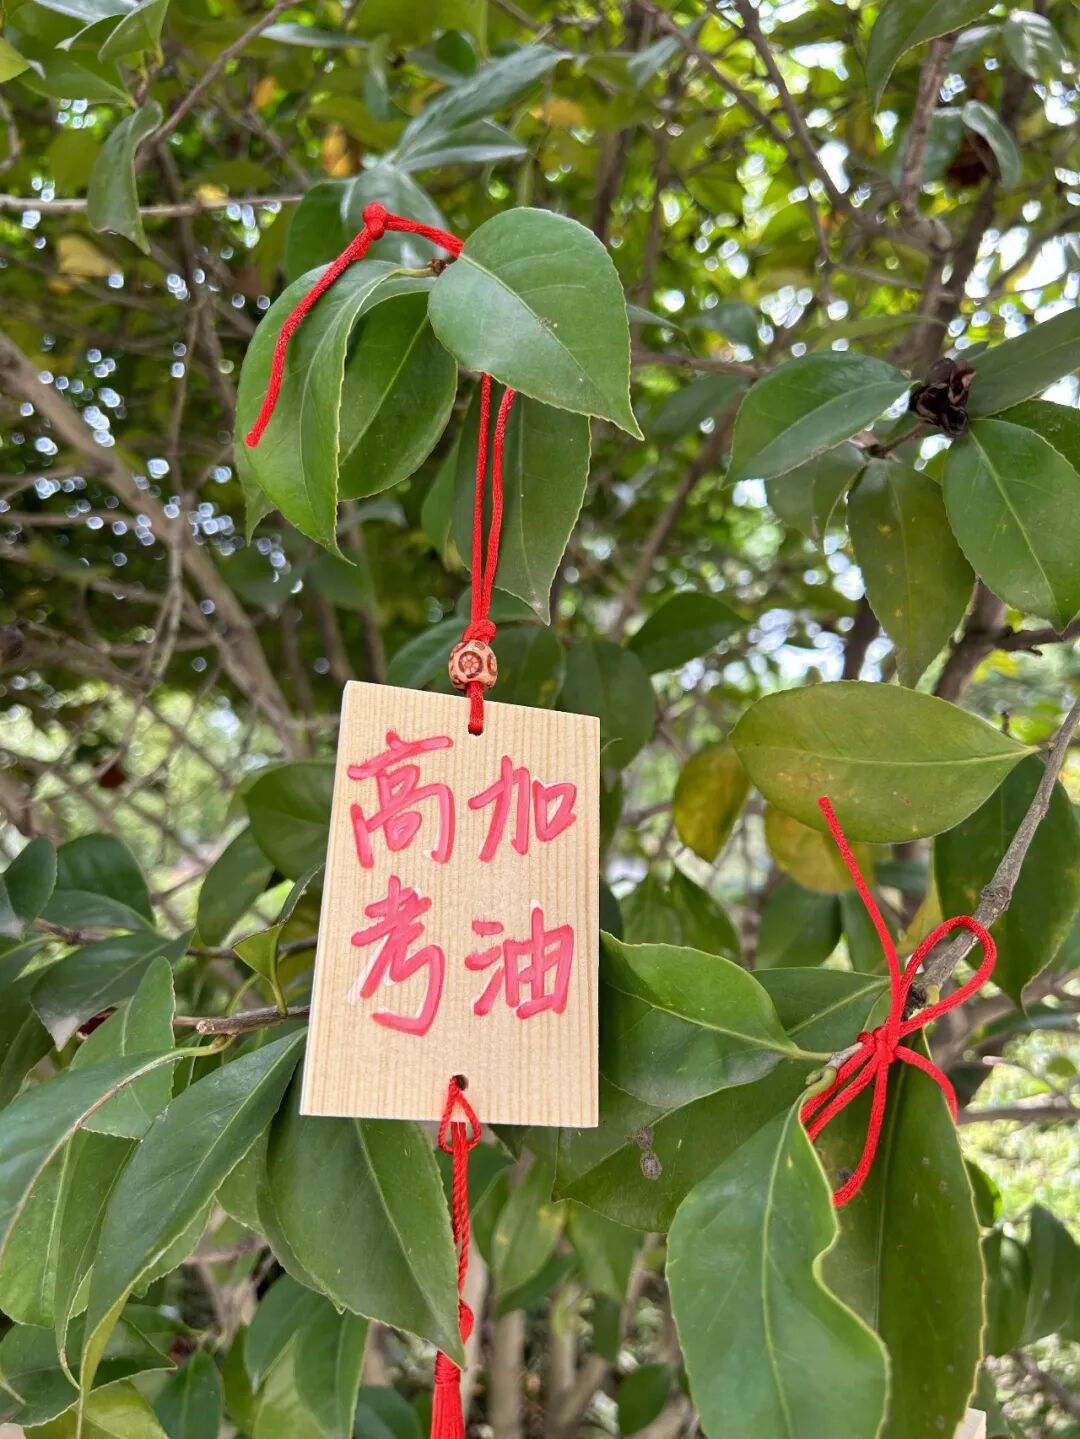 高考
加油